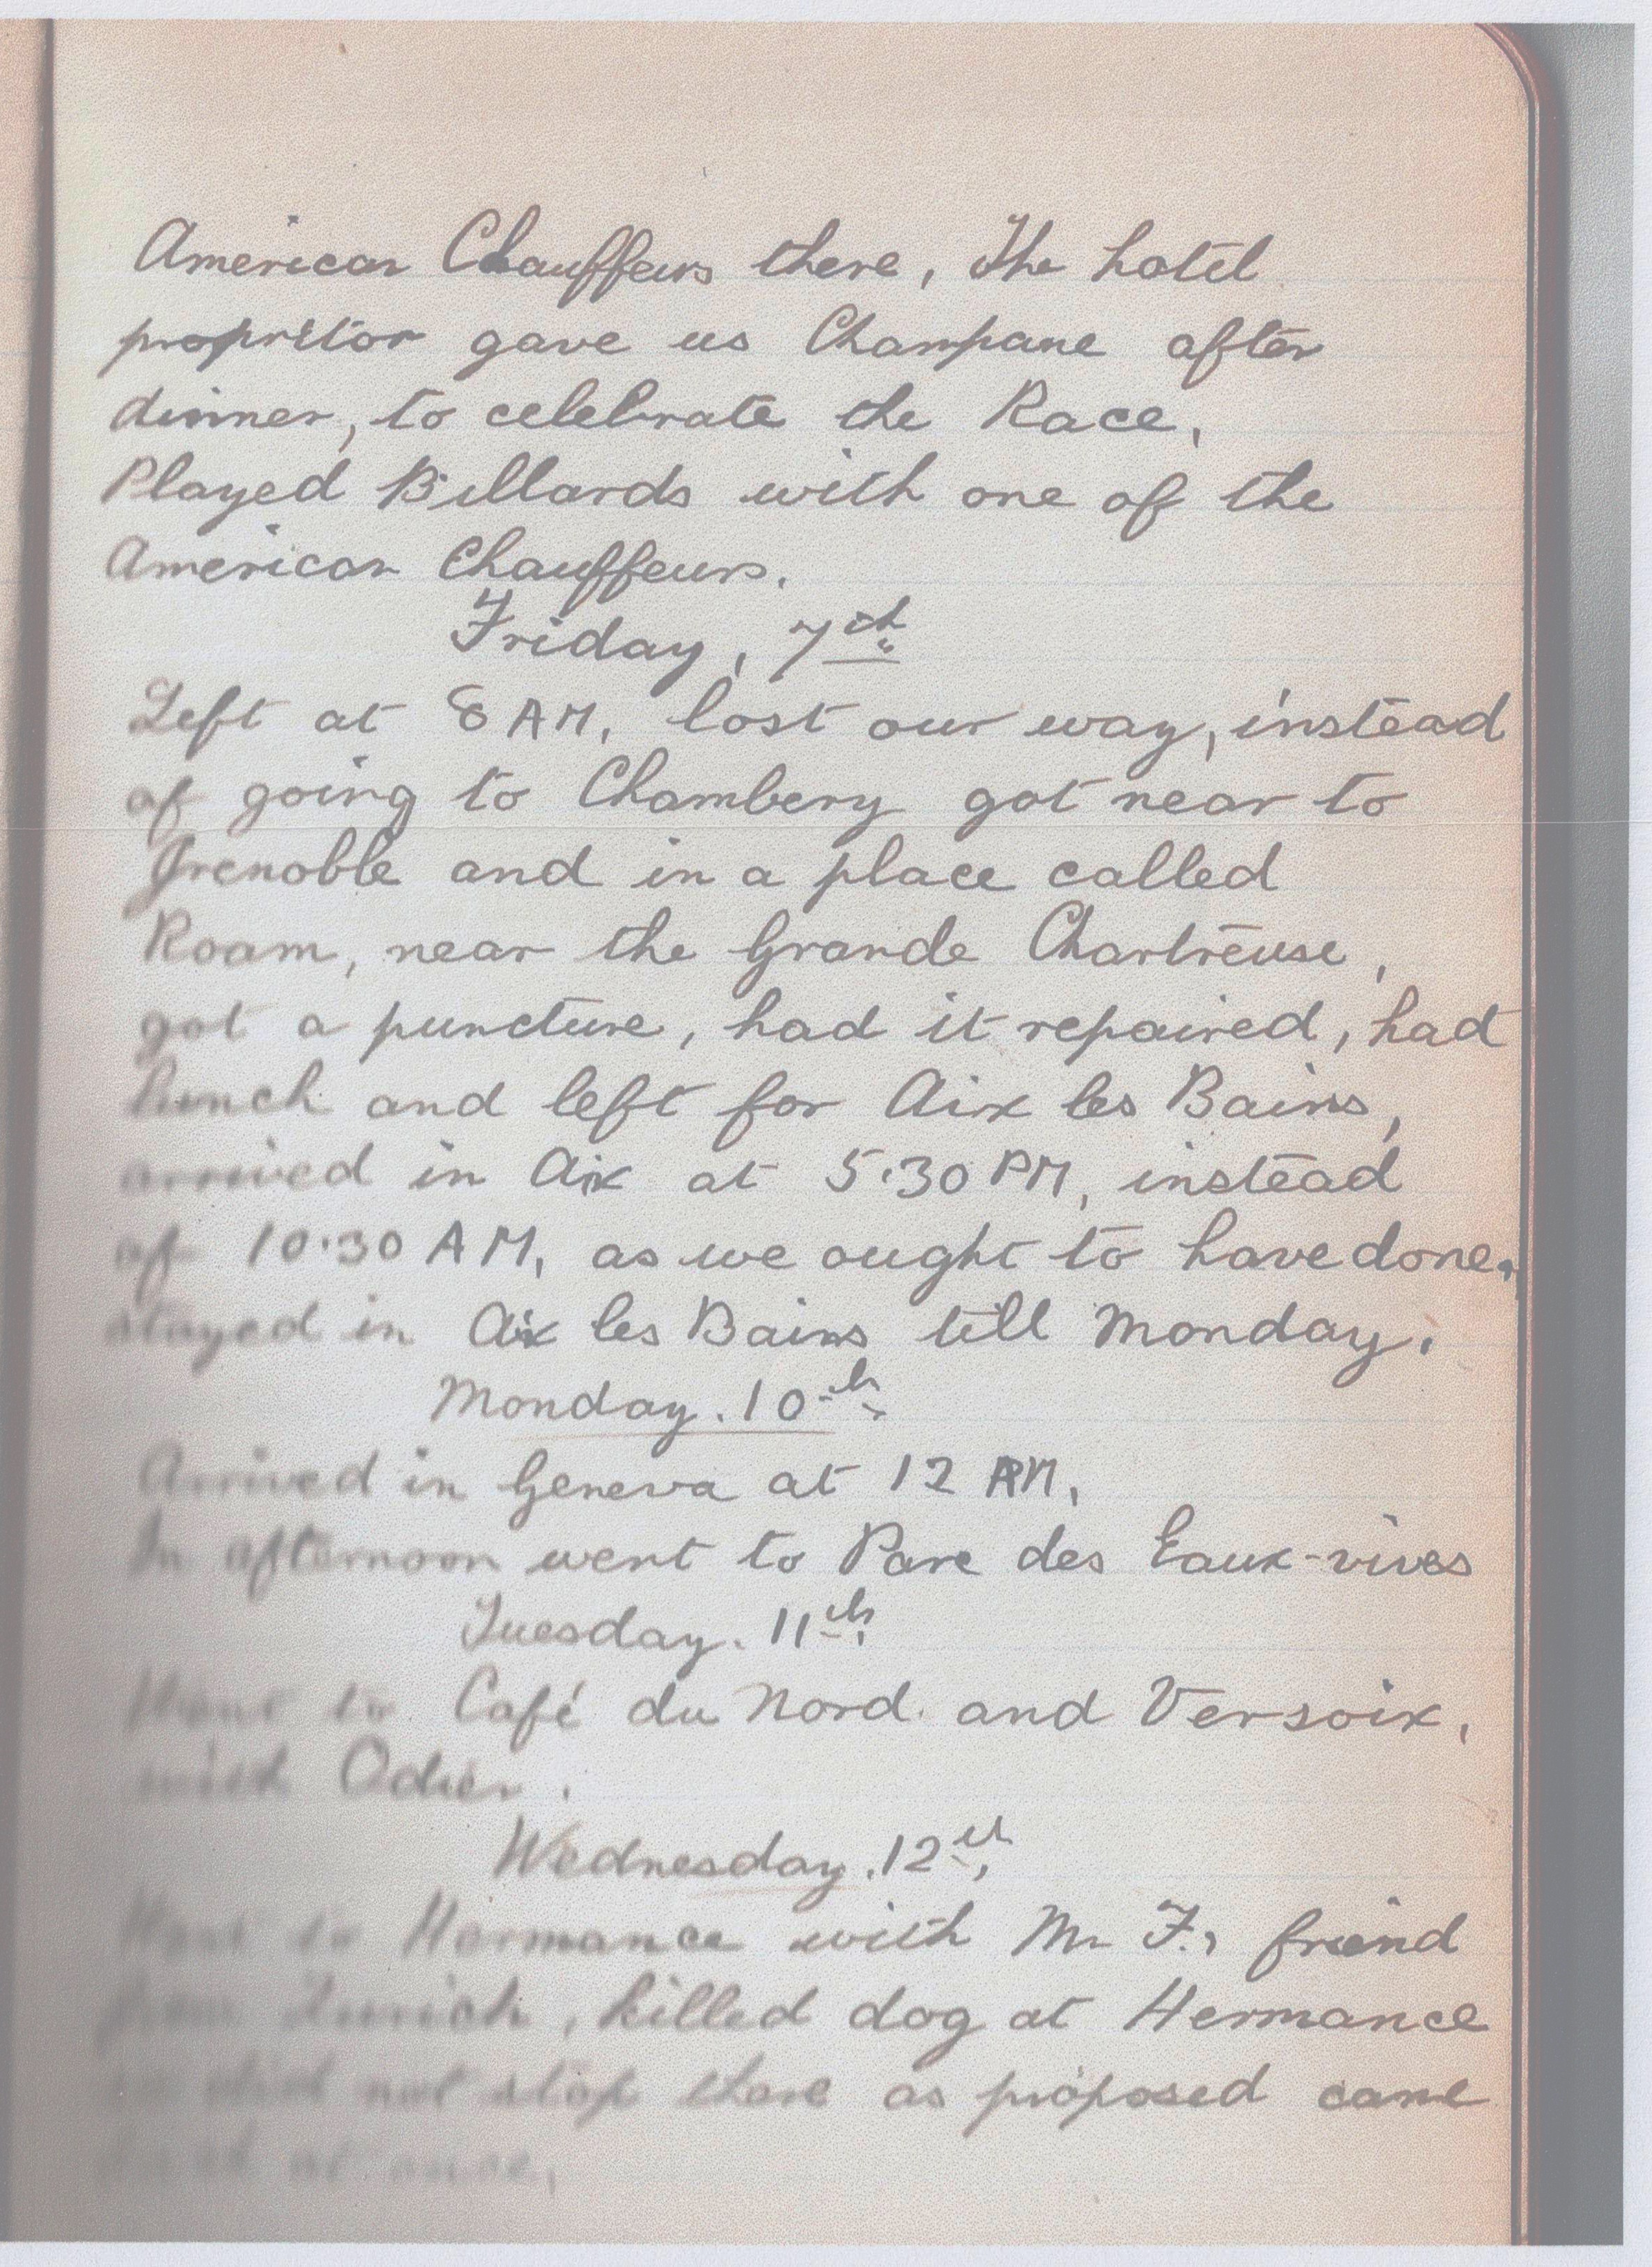 American Chauffeurs there, The hotel
propritor gave us Champane after
dinner, to celebrate the Race,
Played Billards with one of the
American Chauffeurs.
Friday, 7th
Left at 8 AM, lost our way, instead
of going to Chambery got near to
Grenoble and in a place called
Roam, near the Grande Chartreuse,
got a puncture, had it repaired, had
lunch and left for Aix les Bains,
arrived in Aix at 5.30 PM, instead
of 10.30 AM, as we ought to have done,
stayed in Aix les Bains till Monday.
Monday. 10th
Arrived in Geneva at 12 AM,
In afternoon went to Parc des Eaux-vives
Tuesday. 11th
Went to Café du Nord and Versoix,
with Odier.
Wednesday. 12th,
Went to Hermance with Mr F.s friend
from Zurich, killed dog at Hermance
so did not stop there as proposed came
back at once,